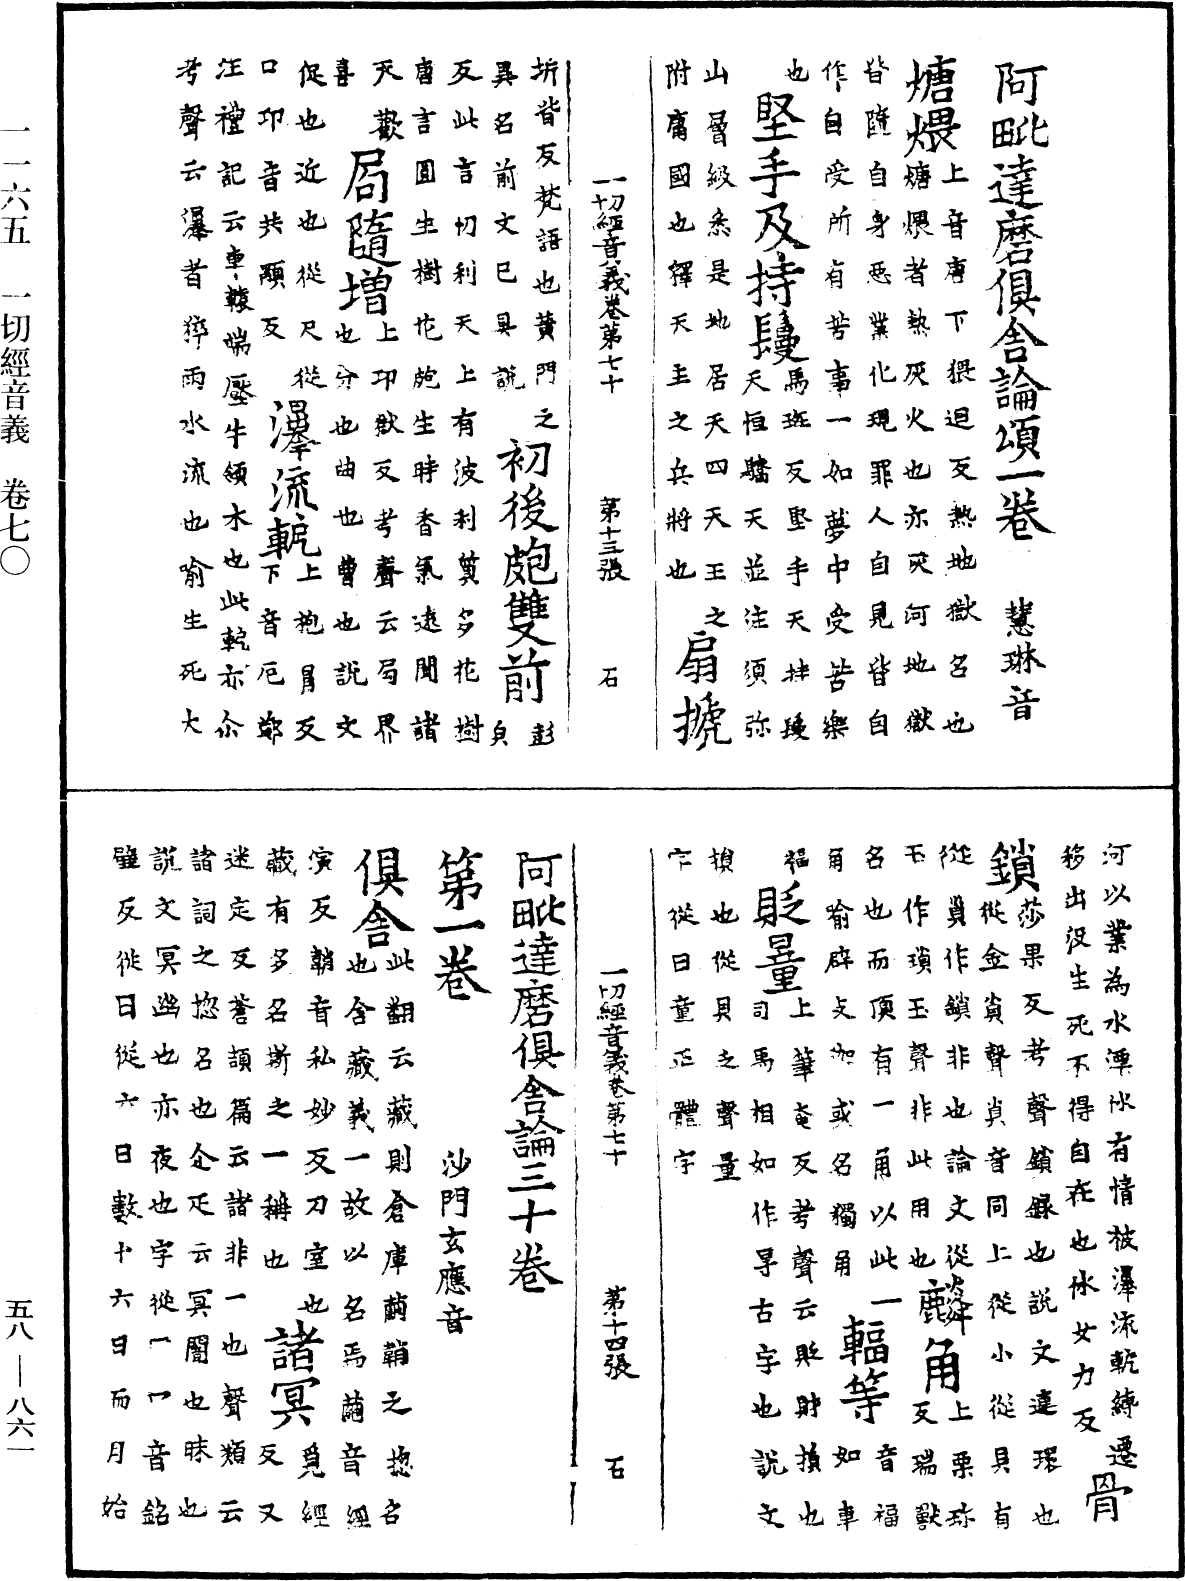 阿毗達磨俱舍論頌一卷　慧琳音
煻煨上音唐下猥迴反熱地獄名也
煻煨者熱灰火也亦灰河地獄
皆隨自身惡業化現罪人自見皆自
作自受所有苦事一如夢中受苦樂
也堅手及持鬘馬班反堅手天持鬘
天恒驕天並注須弥
山層級悉是地居天四天王之
附庸國也釋天主之兵將也扇搋
一切經音義卷第七十　第十三張　石
坼皆反梵語也黃門之
異名前文已具說初後皰雙前彭皃
反此言忉利天上有波利質多花樹
唐言圓生樹花皰生時香氣遠聞諸
天歡喜也局隨增上卬獄反考聲云局界
也分也曲也曹也說文
促也近也從尺從口卬音共顒反瀑流軶上抱冐反
下音厄鄭
注禮記云車轅端壓牛領木也此軶亦尒
考聲云瀑者猝雨水流也喻生死大
河以業為水漂㲻有情被瀑流軶縛遷
移出沒生死不得自在也㲻女力反骨
鎖莎果反考聲鎖録也說文連環也
從金𧴪聲𧴪音同上從小從貝有
從巢作鏁非也論文從
玉作瑣玉聲非此用也麟角上栗珎反瑞獸
名也而頂有一角以此一
角喻辟支迦或名獨角輻等音福如車
輻也貶量上筆奄反考聲云貶財損也
司馬相如作㝵古字也說文
損也從貝乏聲量
字從日童正體字
一切經音義卷第七十　第十四張　石
阿毗達磨俱舍論三十卷
第一卷　沙門玄應音
俱舍此翻云藏則倉庫繭鞘之揔名
也舍藏義一故以名焉繭音經
演反鞘音私妙反刀室也
藏有多名斯之一稱也諸冥覓經反又
迷定反蒼頡篇云諸非一也聲類云
諸詞之揔名也仚疋云冥闇也昧也
說文冥幽也亦夜也字從冖冖音銘
壁反從日從六日數十六日而月始
一一六五　一切經音義　卷七〇
五八—八六一